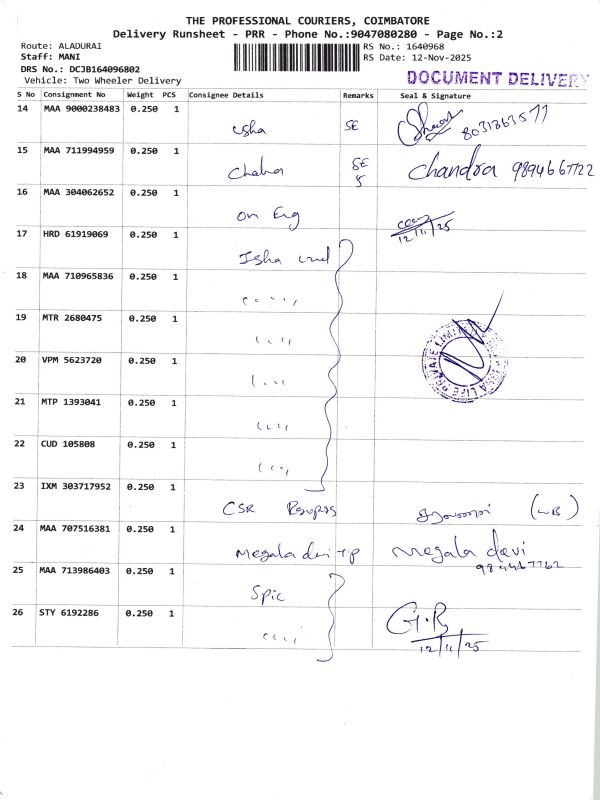 THE PROFESSIONAL COURIERS, COIMBATORE
Delivery Runsheet - PRR - Phone No.:9047080280 - Page No.:2
Route: ALADURAI
Staff: MANI
DRS No.: DCJB164096802
Vehicle: Two Wheeler Delivery
RS No.: 1640968
RS Date: 12-Nov-2025
DOCUMENT DELIVERY
S No Consignment No Weight PCS Consignee Details Remarks Seal & Signature
14 MAA 9000238483 0.250 1 usha SE
15 MAA 711994959 0.250 1 SE 5 Chandra 9894667722
16 MAA 304062652 0.250 1 on Eng 12/11/25
17 HRD 61919069 0.250 1 Isha
18 MAA 710965836 0.250 1 " "
19 MTR 2680475 0.250 1 " "
20 VPM 5623720 0.250 1 " "
21 MTP 1393041 0.250 1 " "
22 CUD 105808 0.250 1 " "
PRIVATE LIMITED
23 IXM 303717952 0.250 1 CSR
24 MAA 707516381 0.250 1 Megala devi T.P Megala devi
25 MAA 713986403 0.250 1 Spic
26 STY 6192286 0.250 1 " " G.R
12/11/25